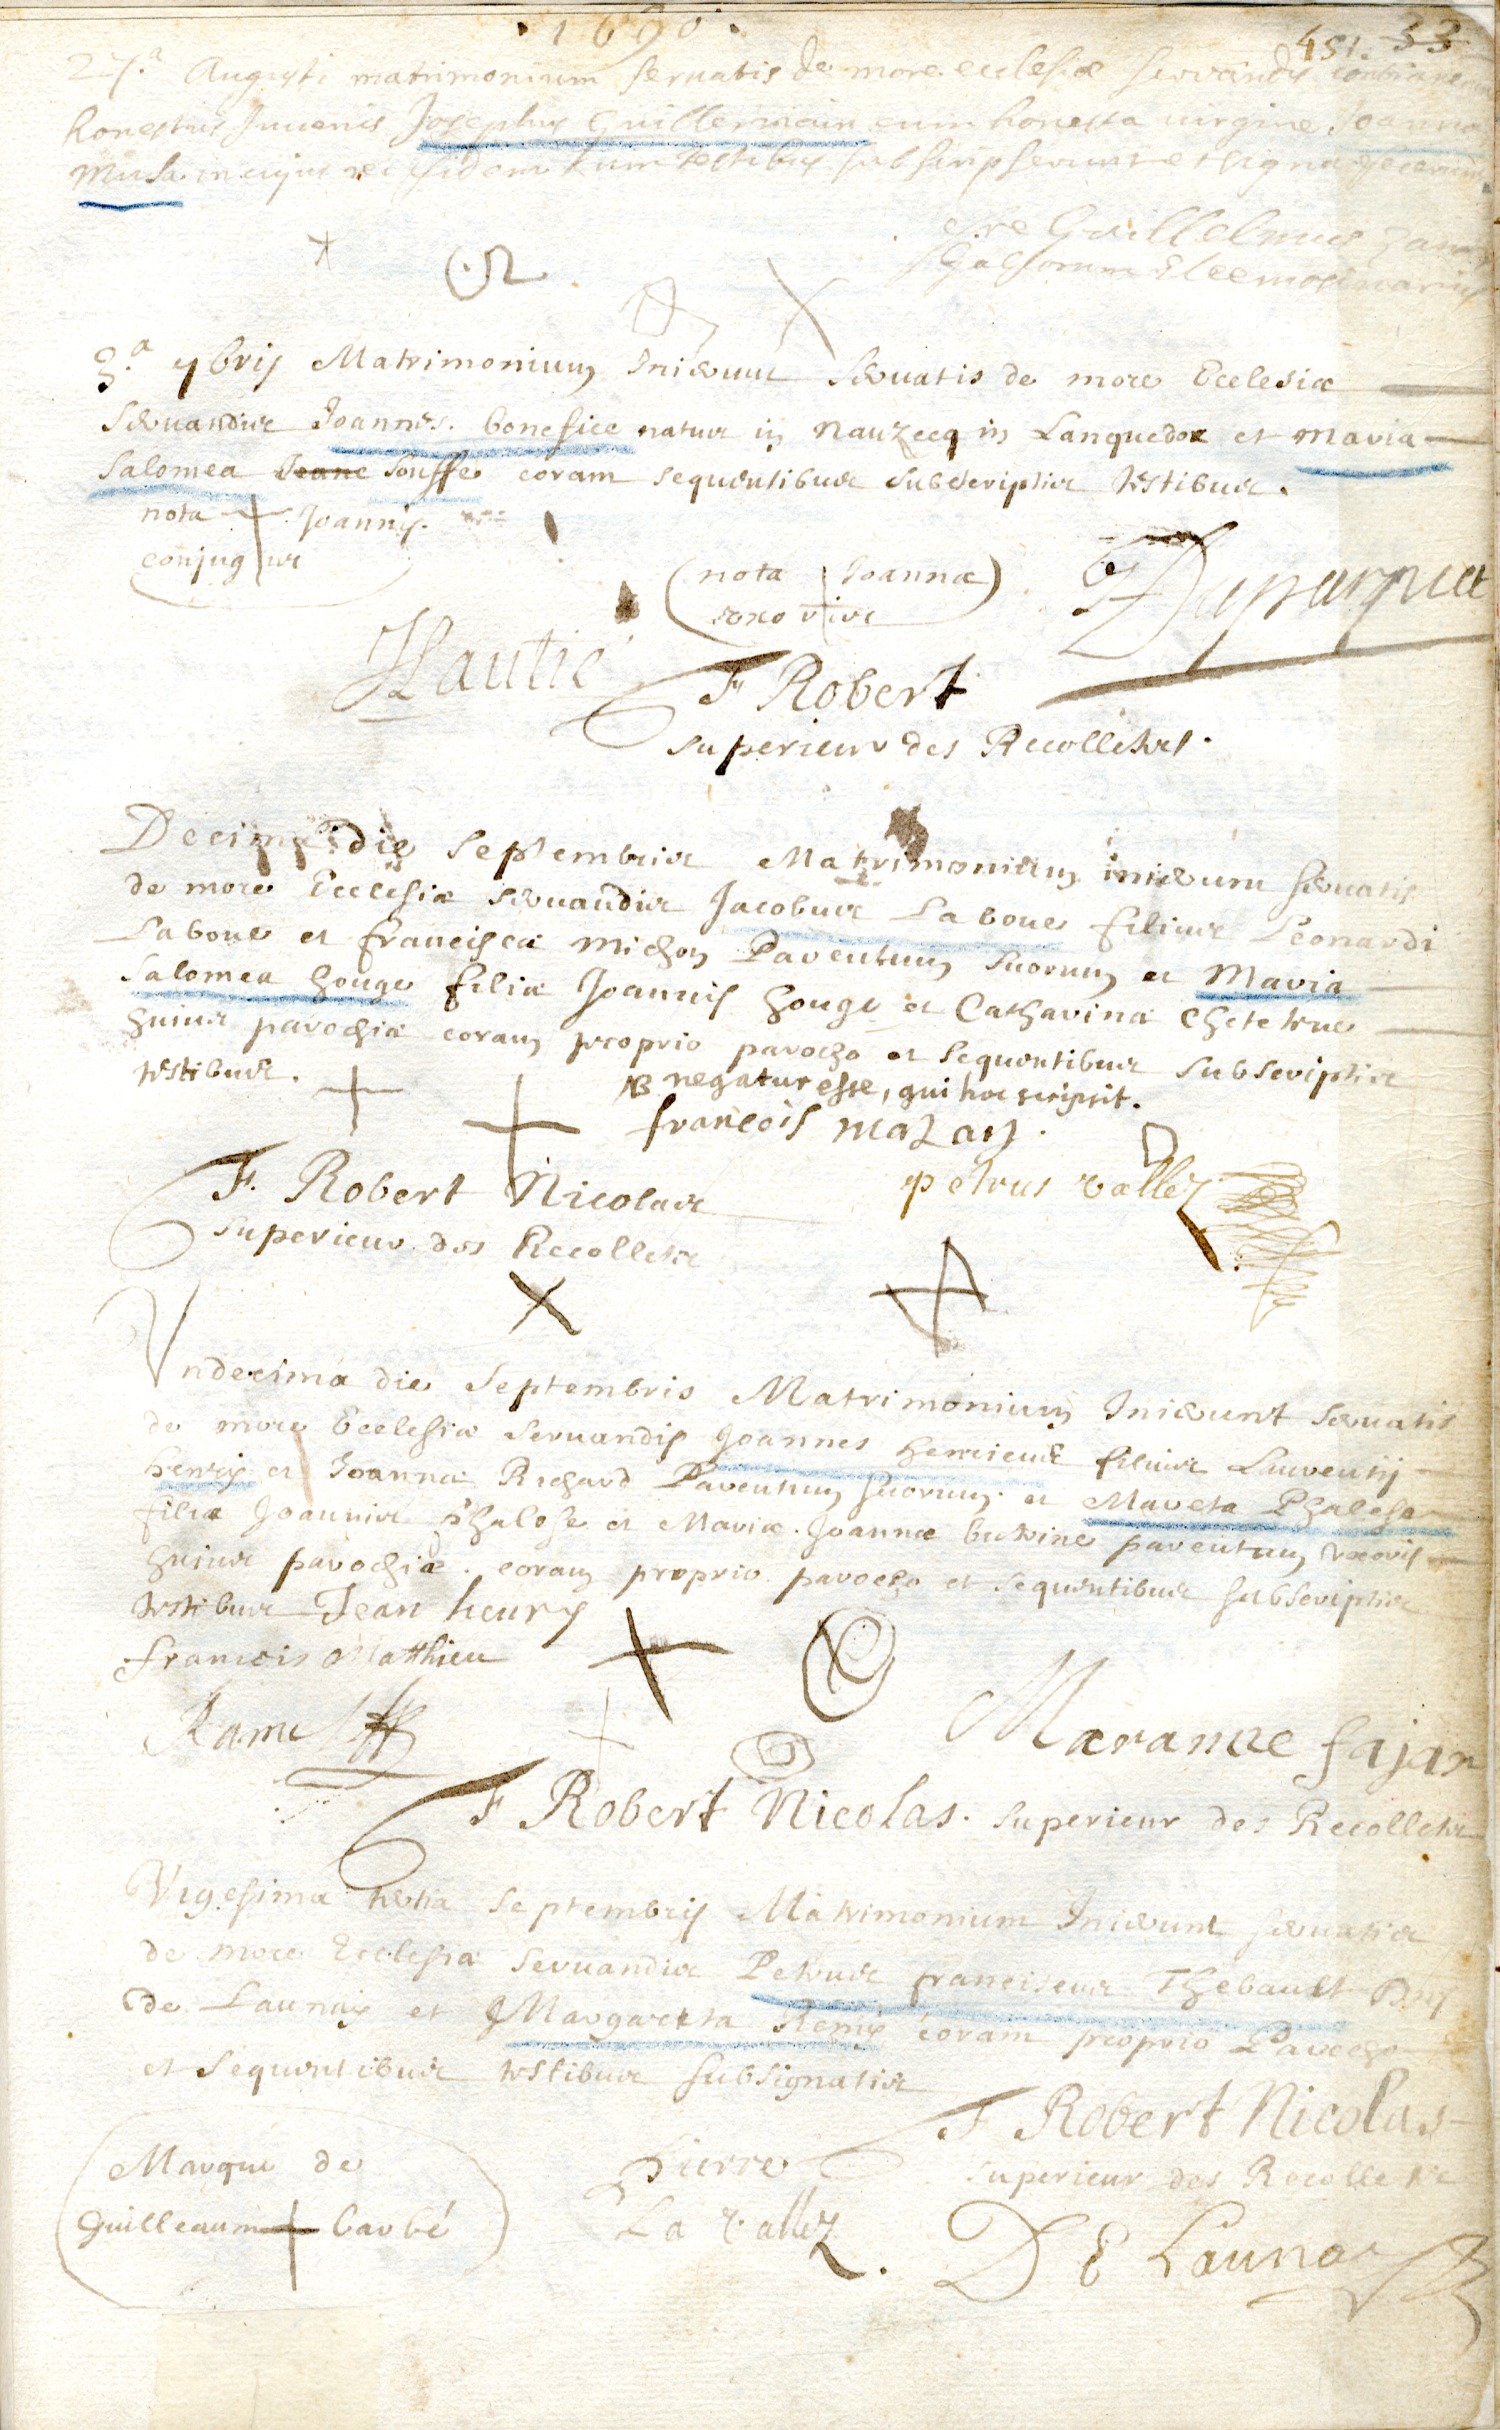 1690
451. 33
27.a Augusti matrimonium servatis de more ecclesiæ servandis
honestus Juvenis Josephus Guillermain cum honesta virgine Joanna
Musa in cujus rei fidem cum testibus subscripserunt et signa fecerunt
fre Guillelmus
Gallorum Eleemosinarius
3.a 7bris Matrimonium Inierunt Servatis de more Ecclesiæ
Servandis Joannes Bonefice natus in Nauzecq in Lanquedox et Maria
Salomea Jeane Souffe coram sequentibus subscriptis testibus.
nota Joannis
conjugis
(nota Joannæ)
uxoris
Duparquet
Hautié
F Robert
superieur des Recollets.
Decima die Septembris Matrimonium inierunt servatis
de more Ecclesiæ servandis Jacobus Laboue filius Leonardi
Laboue et francisca Michon Parentum suorum et Maria
Salomea Houge filia Joannis Houge et Catharina Chetetrue
huius parochiæ coram proprio parocho et sequentibus subscriptis
testibus.
NB negatur esse, qui hoc scripsit.
françois mazan.
F. Robert Nicolas
superieur des Recollets
petrus vallez
Undecima die Septembris Matrimonium Inierunt servatis
de more Ecclesiæ servandis Joannes henricus filius Laurentij
henry et Joanna Richard Parentum suorum et Mareta Phalese
filia Joannis Phalose et Mariæ Joannæ butrine parentum uxoris
huius parochiæ. coram proprio parocho et sequentibus subscriptis
testibus Jean henry
françois Matthieu
Rame
Maranze fajan
F Robert Nicolas. superieur des Recollets
Vigesima tertia septembris Matrimonium Inierunt servatis
de more Ecclesiæ servandis Petrus franciscus Thebault Dnus
de Launay et Margareta Remy coram proprio Parocho
et sequentibus testibus subsignatis
F Robert Nicolas
superieur des Recollets
Marque de
Guilleaume barbé
Pierre
La vallez.
DE Launay